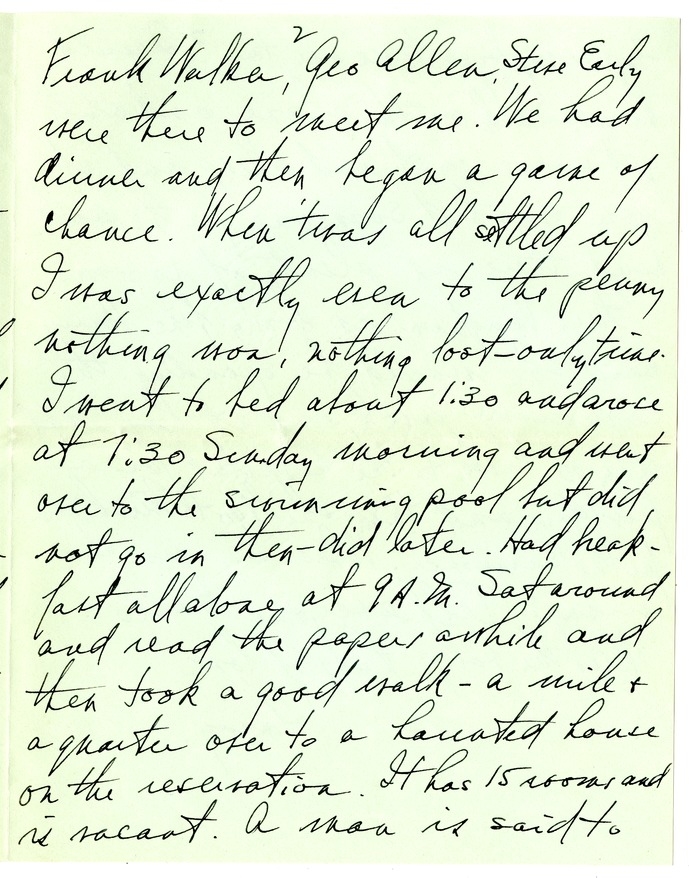 2
Frank Walker, Geo Allen, Steve Early
were there to meet me. We had
dinner and then began a game of
chance. When 'twas all settled up
I was exactly even to the penny
nothing won, nothing lost-only time.
I went to bed about 1:30 and arose
at 7:30 Sunday morning and went
over to the swimming pool but did
not go in then-did later. Had break-
fast all alone at 9 A.M. Sat around
and read the papers awhile and
then took a good walk - a mile &
a quarter over to a haunted house
on the reservation. It has 15 rooms and
is vacant. A man is said to